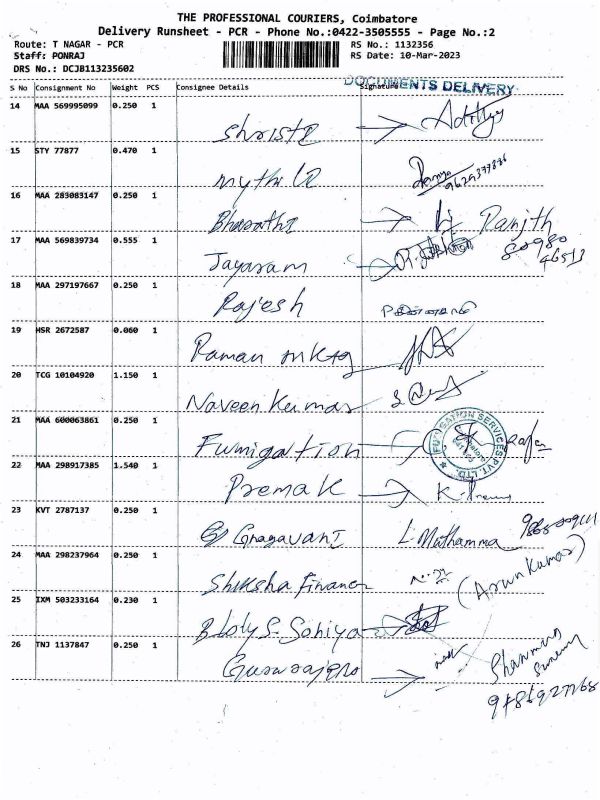 THE PROFESSIONAL COURIERS, Coimbatore
Delivery Runsheet - PCR - Phone No.:0422-3505555 - Page No.:2
Route: T NAGAR - PCR RS No.: 1132356
Staff: PONRAJ RS Date: 10-Mar-2023
DRS No.: DCJB113235602
DOCUMENTS DELIVERY
S No Consignment No Weight PCS Consignee Details Signature
14 MAA 569995099 0.250 1
15 STY 77877 0.470 1
Mythili
16 MAA 283083147 0.250 1
Bharathi Ranjith
17 MAA 569839734 0.555 1
Jayaram
18 MAA 297197667 0.250 1
Rajesh
19 HSR 2672587 0.060 1
Raman mktg
20 TCG 10104920 1.150 1
Naveen Kumar
21 MAA 600063861 0.250 1
Fumigation
22 MAA 298917385 1.540 1
Prema K
23 KVT 2787137 0.250 1
L. Muthamma
24 MAA 298237964 0.250 1
Shiksha Finance (Arun Kumar)
25 IXM 503233164 0.230 1
26 TNJ 1137847 0.250 1